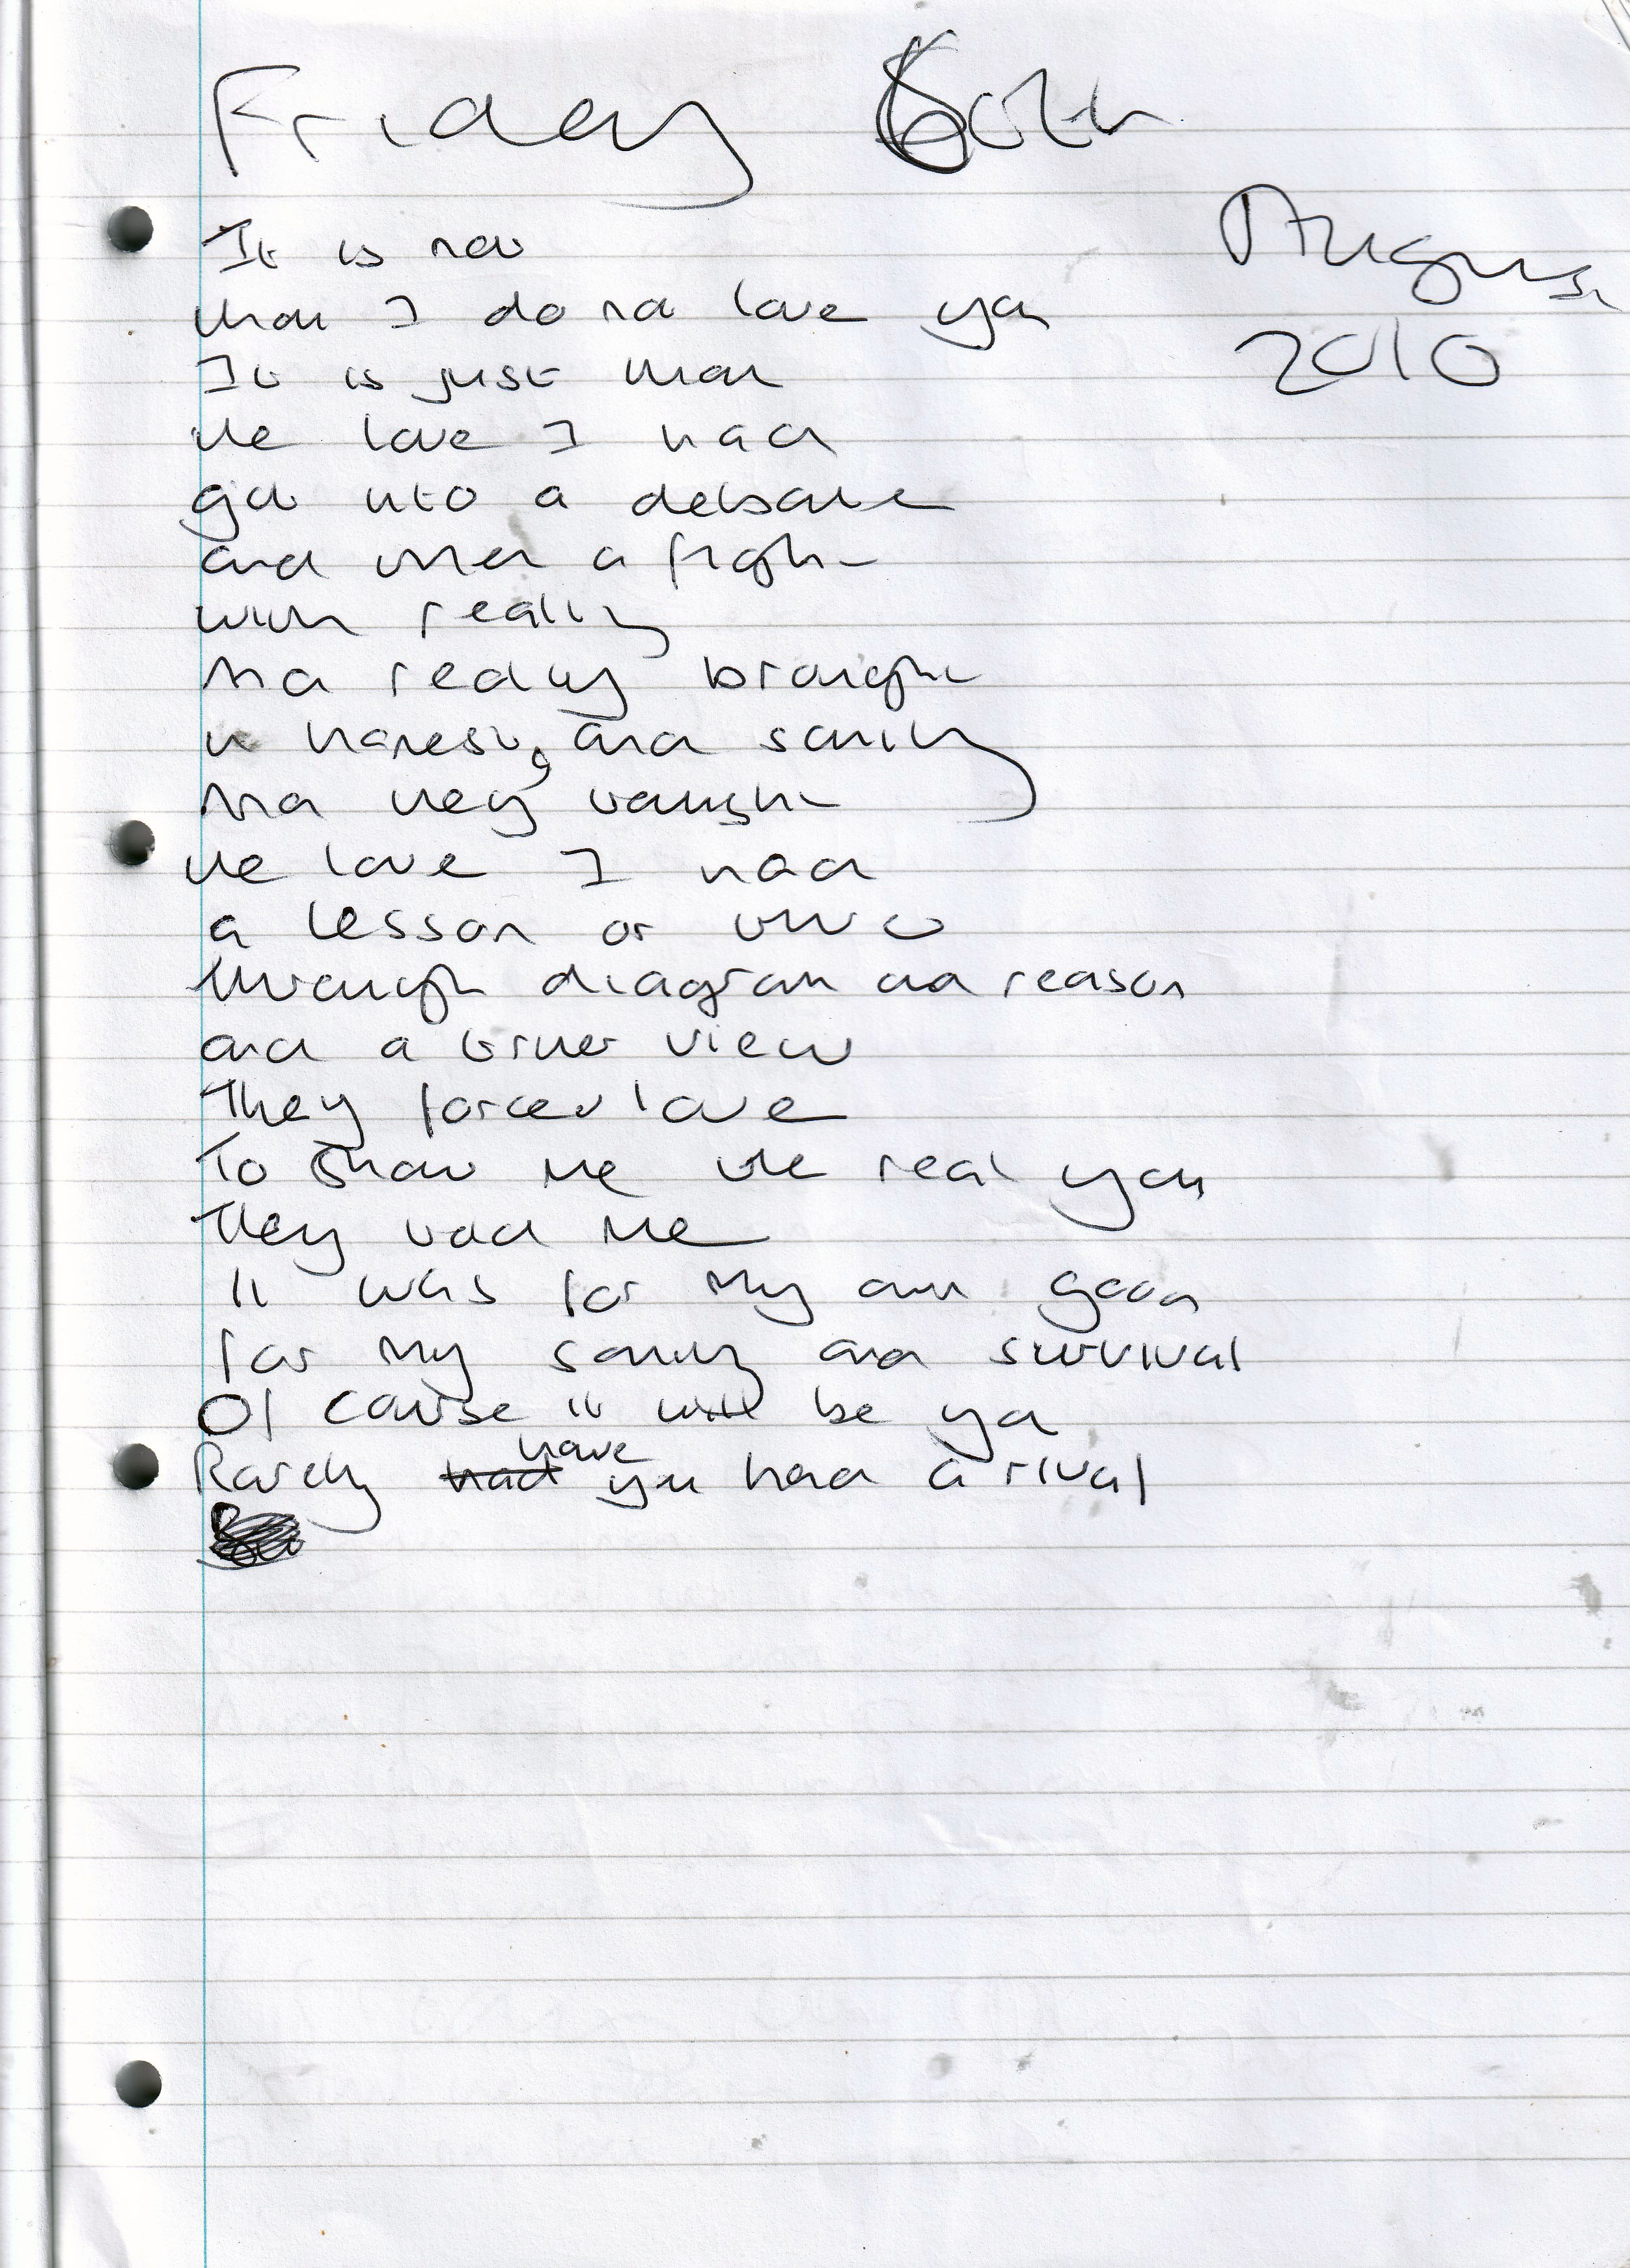 Friday 6th
August
2010
It is not
that I do not love you
It is just that
the love I had
got into a debate
and then a fight
with reality
And reality brought
in honesty, and sanity
And they taught
the love I had
a lesson or two
through diagram and reason
and a truer view
They forced love
To show me the real you
They told me
It was for my own good
for my sanity and survival
Of course it will be you
Rarely have you had a rival